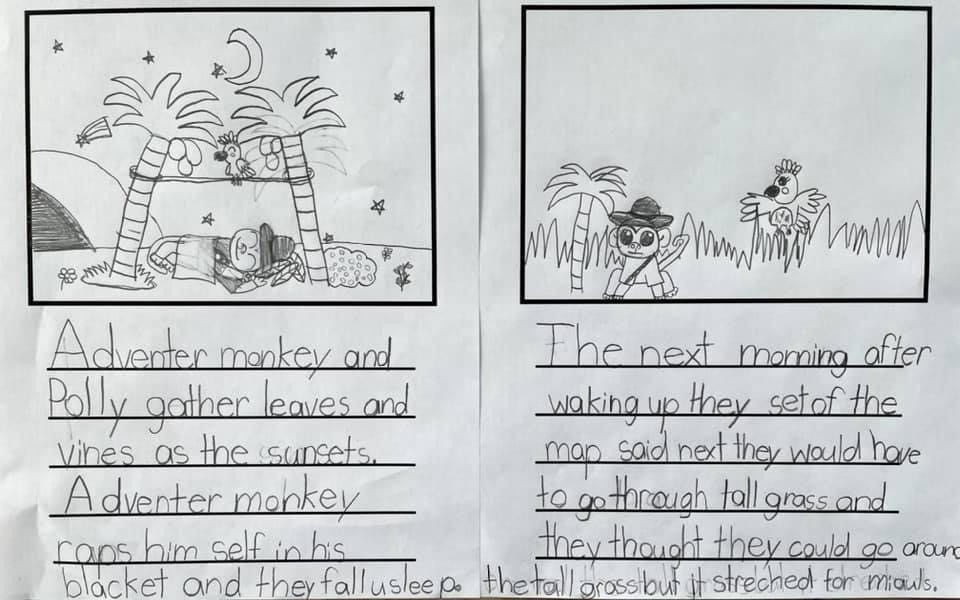 Adventer monkey and
Polly gather leaves and
vines as the sunsets.
Adventer monkey
raps him self in his
blacket and they fall usleep.
The next morning after
waking up they set of the
map said next they would have
to go through tall grass and
they thought they could go around
the tall grass but it streched for miauls.